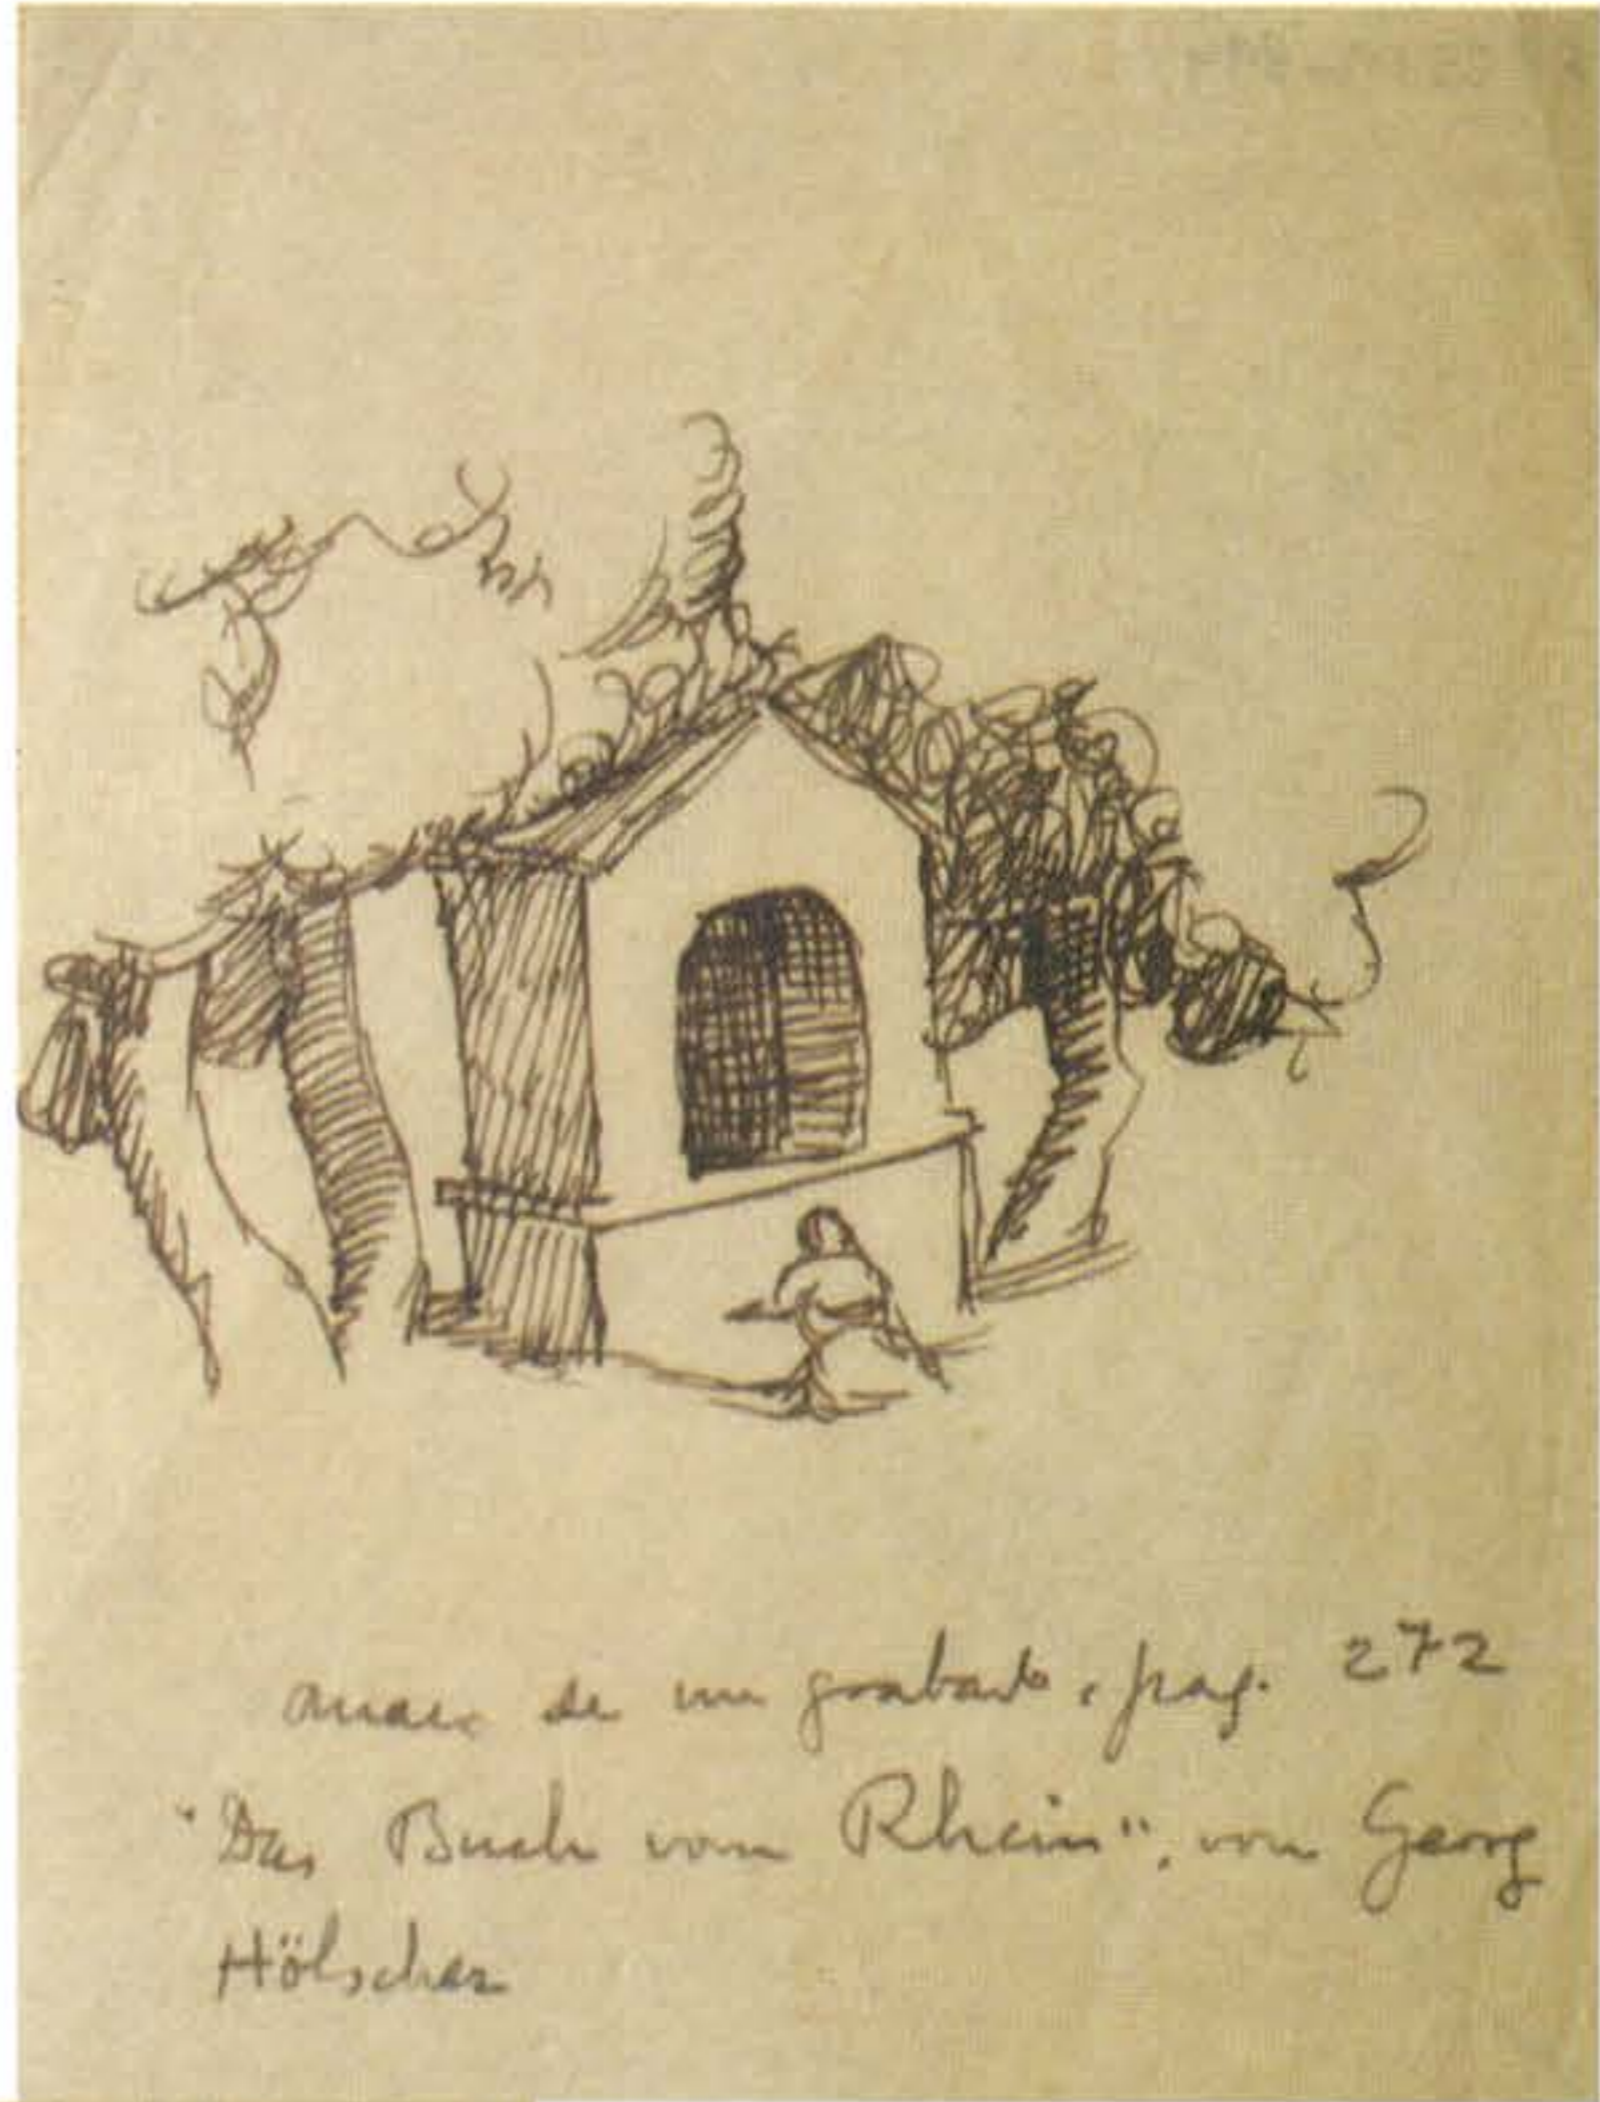 de un grabado, pag. 272
"Das Buch vom Rhein", von Georg
Hölscher